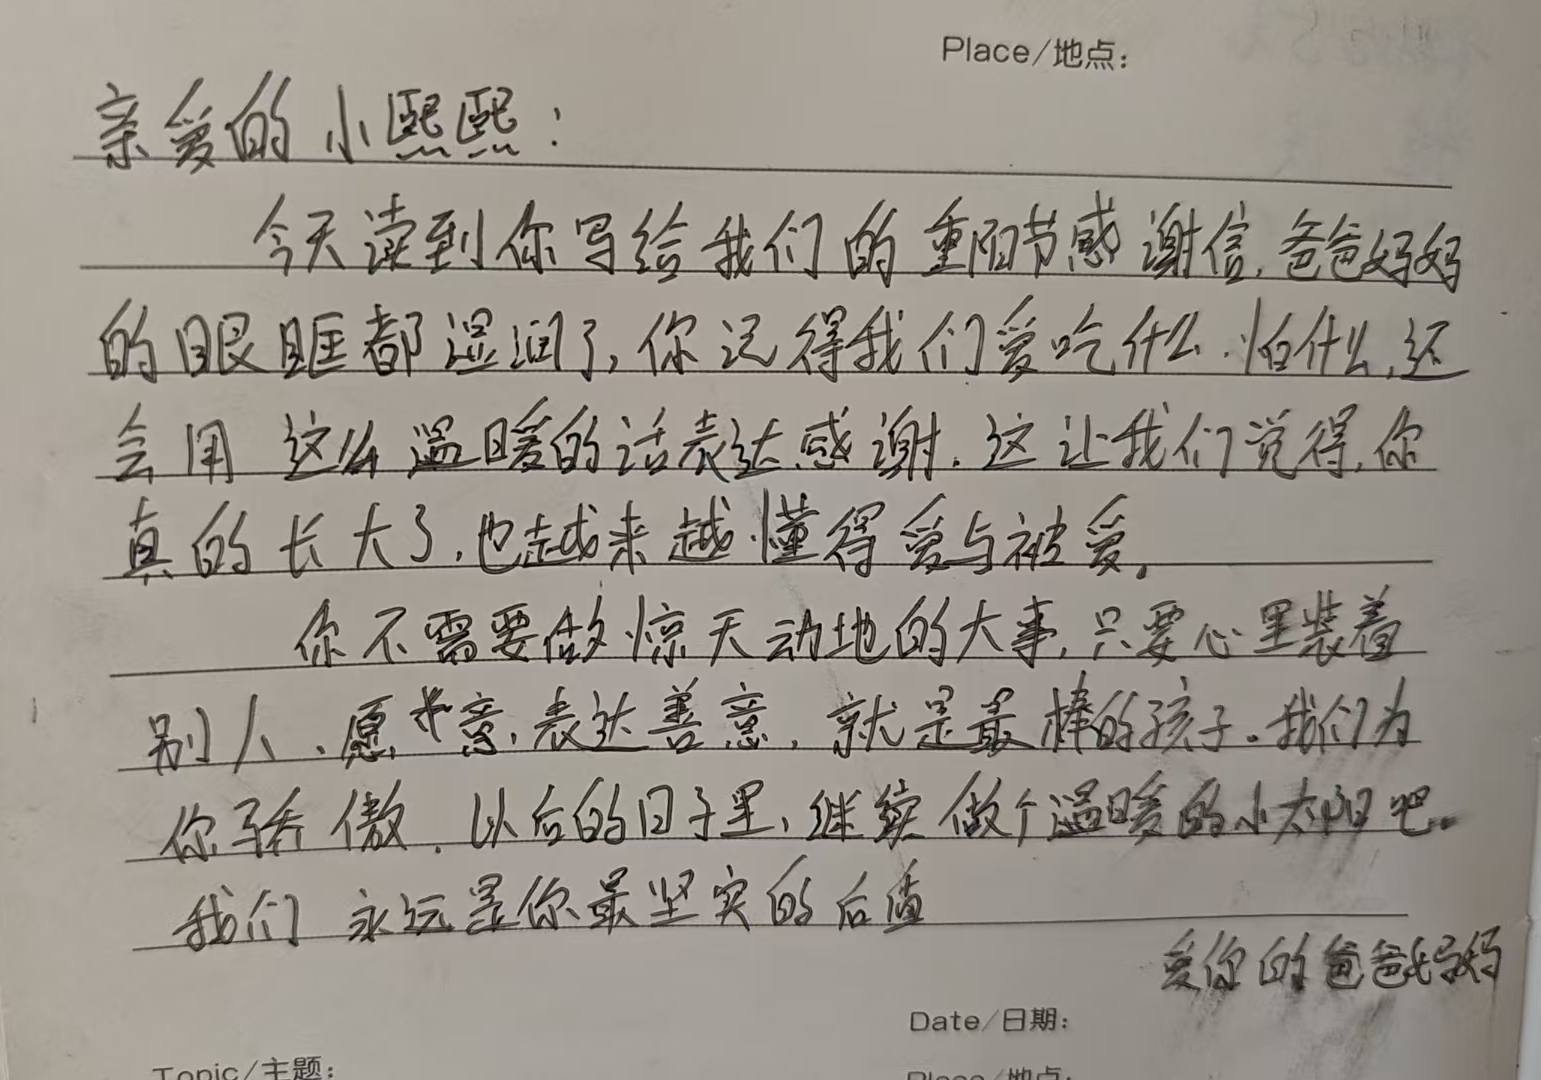 Place/地点:
亲爱的小熙熙:
今天读到你写给我们的重阳节感谢信,爸爸妈妈
的眼眶都湿润了,你记得我们爱吃什么、怕什么,还
会用这么温暖的话表达感谢,这让我们觉得,你
真的长大了,也越来越懂得爱与被爱。
你不需要做惊天动地的大事,只要心里装着
别人、愿意表达善意,就是最棒的孩子。我们为
你骄傲,以后的日子里,继续做个温暖的小太阳吧。
我们永远是你最坚实的后盾
爱你的爸爸妈妈
Date/日期:
Topic/主题:
Place/地点: